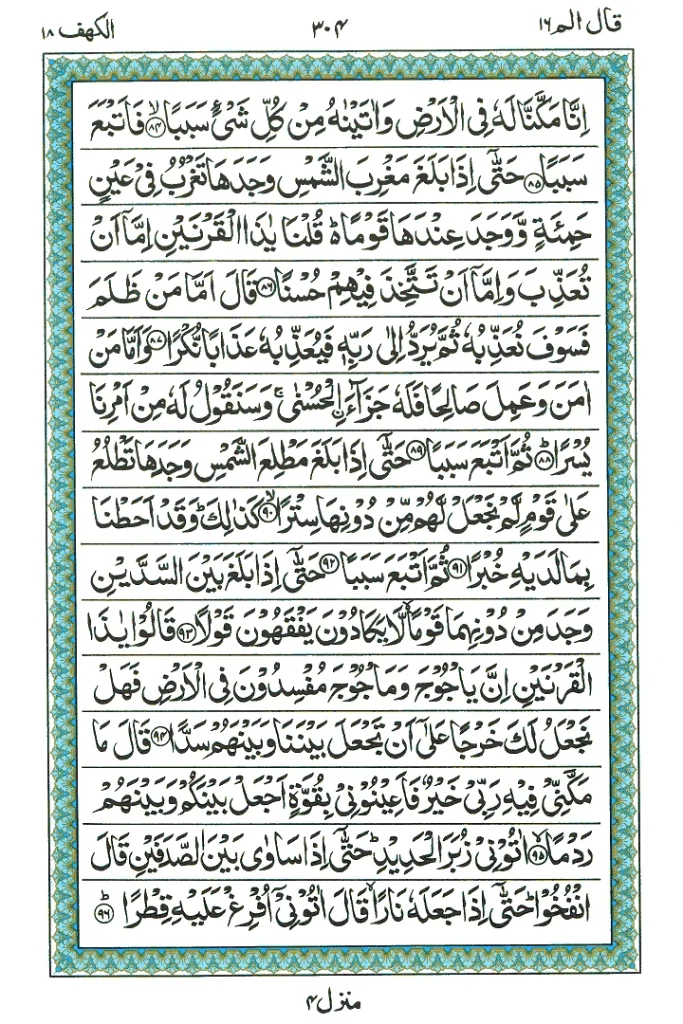 قال الم ۱۶ ۳۰۴ الكهف ۱۸
اِنَّا مَكَّنَّا لَهٗ فِي الْاَرْضِ وَاٰتَيْنٰهُ مِنْ كُلِّ شَيْءٍ سَبَبًا ۙ﴿۸۴﴾ فَاَتْبَعَ
سَبَبًا ﴿۸۵﴾ حَتّٰۤى اِذَا بَلَغَ مَغْرِبَ الشَّمْسِ وَجَدَهَا تَغْرُبُ فِيْ عَيْنٍ
حَمِئَةٍ وَّوَجَدَ عِنْدَهَا قَوْمًا ؕ قُلْنَا يٰذَا الْقَرْنَيْنِ اِمَّاۤ اَنْ
تُعَذِّبَ وَاِمَّاۤ اَنْ تَتَّخِذَ فِيْهِمْ حُسْنًا ﴿۸۶﴾ قَالَ اَمَّا مَنْ ظَلَمَ
فَسَوْفَ نُعَذِّبُهٗ ثُمَّ يُرَدُّ اِلٰى رَبِّهٖ فَيُعَذِّبُهٗ عَذَابًا نُّكْرًا ﴿۸۷﴾ وَاَمَّا مَنْ
اٰمَنَ وَعَمِلَ صَالِحًا فَلَهٗ جَزَآءَ ۨالْحُسْنٰى ۚ وَسَنَقُوْلُ لَهٗ مِنْ اَمْرِنَا
يُسْرًا ؕ﴿۸۸﴾ ثُمَّ اَتْبَعَ سَبَبًا ﴿۸۹﴾ حَتّٰۤى اِذَا بَلَغَ مَطْلِعَ الشَّمْسِ وَجَدَهَا تَطْلُعُ
عَلٰى قَوْمٍ لَّمْ نَجْعَلْ لَّهُمْ مِّنْ دُوْنِهَا سِتْرًا ۙ﴿۹۰﴾ كَذٰلِكَ ؕ وَقَدْ اَحَطْنَا
بِمَا لَدَيْهِ خُبْرًا ﴿۹۱﴾ ثُمَّ اَتْبَعَ سَبَبًا ﴿۹۲﴾ حَتّٰۤى اِذَا بَلَغَ بَيْنَ السَّدَّيْنِ
وَجَدَ مِنْ دُوْنِهِمَا قَوْمًا ۙ لَّا يَكَادُوْنَ يَفْقَهُوْنَ قَوْلًا ﴿۹۳﴾ قَالُوْا يٰذَا
الْقَرْنَيْنِ اِنَّ يَاْجُوْجَ وَمَاْجُوْجَ مُفْسِدُوْنَ فِي الْاَرْضِ فَهَلْ
نَجْعَلُ لَكَ خَرْجًا عَلٰۤى اَنْ تَجْعَلَ بَيْنَنَا وَبَيْنَهُمْ سَدًّا ﴿۹۴﴾ قَالَ مَا
مَكَّنِّيْ فِيْهِ رَبِّيْ خَيْرٌ فَاَعِيْنُوْنِيْ بِقُوَّةٍ اَجْعَلْ بَيْنَكُمْ وَبَيْنَهُمْ
رَدْمًا ۙ﴿۹۵﴾ اٰتُوْنِيْ زُبَرَ الْحَدِيْدِ ؕ حَتّٰۤى اِذَا سَاوٰى بَيْنَ الصَّدَفَيْنِ قَالَ
انْفُخُوْا ؕ حَتّٰۤى اِذَا جَعَلَهٗ نَارًا ۙ قَالَ اٰتُوْنِيْۤ اُفْرِغْ عَلَيْهِ قِطْرًا ؕ﴿۹۶﴾
منزل ۴